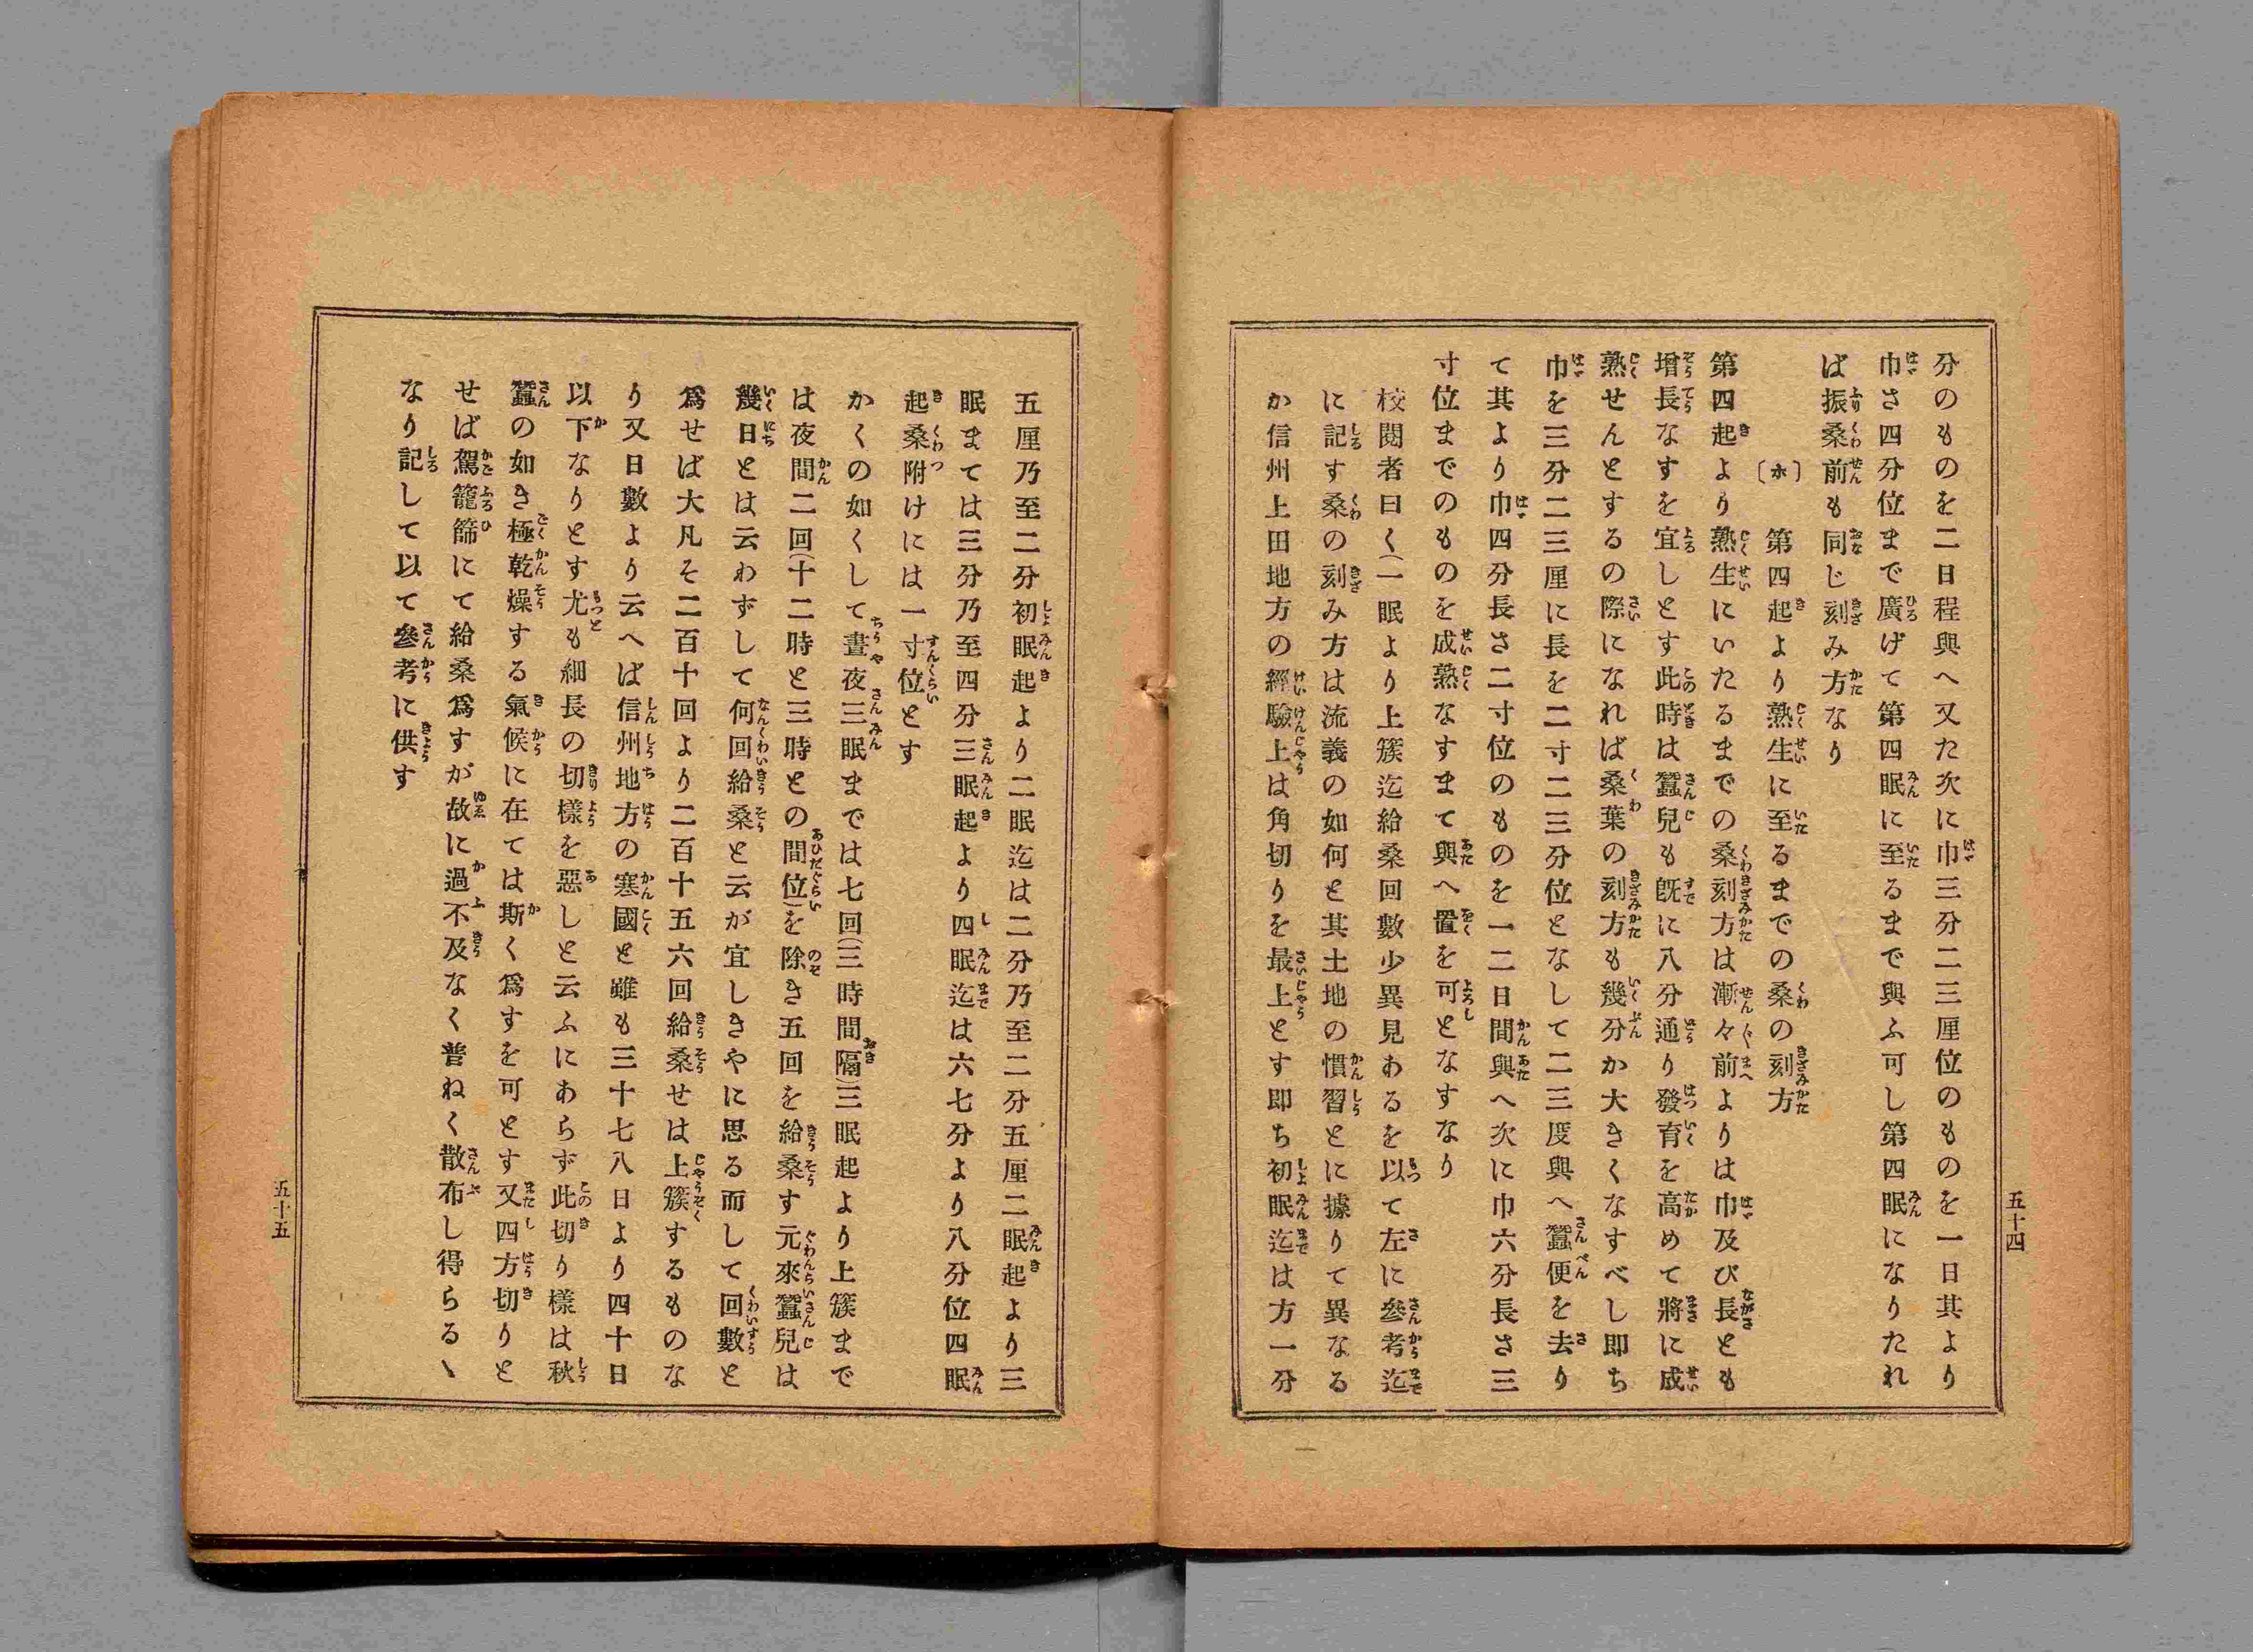 五十四
分のものを二日程與へ又た次に巾三分二三厘位のものを一日其より
巾さ四分位まで廣げて第四眠に至るまで與ふ可し第四眠になりたれ
ば振桑前も同じ刻み方なり
〔ホ〕 第四起より熟生に至るまでの桑の刻方
第四起より熟生にいたるまでの桑刻方は漸々前よりは巾及び長とも
增長なすを宜しとす此時は蠶兒も旣に八分通り發育を高めて將に成
熟せんとするの際になれば桑葉の刻方も幾分か大きくなすべし即ち
巾を三分二三厘に長を二寸二三分位となして二三度與へ蠶便を去り
て其より巾四分長さ二寸位のものを一二日間與へ次に巾六分長さ三
寸位までのものを成熟なすまて與へ置を可となすなり
校閱者曰く(一眠より上簇迄給桑回數少異見あるを以て左に參考迄
に記す桑の刻み方は流義の如何と其土地の慣習とに據りて異なる
か信州上田地方の經驗上は角切りを最上とす即ち初眠迄は方一分
五厘乃至二分初眠起より二眠迄は二分乃至二分五厘二眠起より三
眠まては三分乃至四分三眠起より四眠迄は六七分より八分位四眠
起桑附けには一寸位とす
かくの如くして晝夜三眠までは七回(三時間隔)三眠起より上簇まで
は夜間二回(十二時と三時との間位)を除き五回を給桑す元來蠶兒は
幾日とは云わずして何回給桑と云が宜しきやに思る而して回數と
爲せば大凡そ二百十回より二百十五六回給桑せは上簇するものな
り又日數より云へば信州地方の寒國と雖も三十七八日より四十日
以下なりとす尤も細長の切樣を惡しと云ふにあらず此切り樣は秋
蠶の如き極乾燥する氣候に在ては斯く爲すを可とす又四方切りと
せば駕籠篩にて給桑爲すが故に過不及なく普ねく散布し得らるヽ
なり記して以て參考に供す
五十五